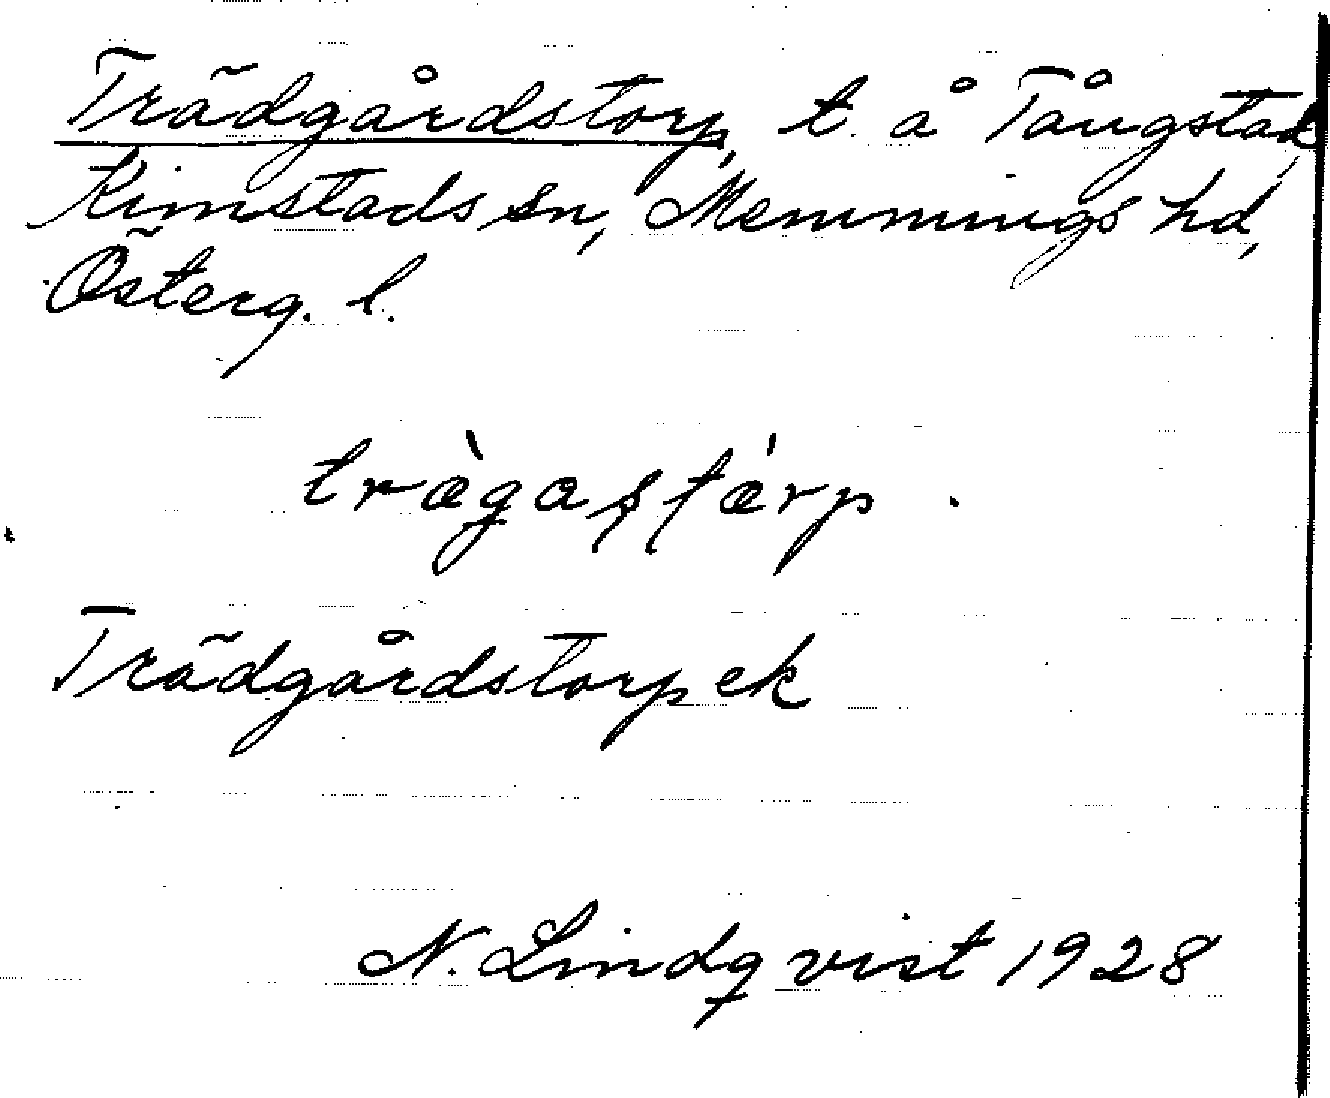 Trädgårdstorp, t. å Tångstad
Kimstads sn, Memmings hd,
Österg. l.
tràgaſtárp.
Trädgårdstorp ek
N. Lindqvist 1928